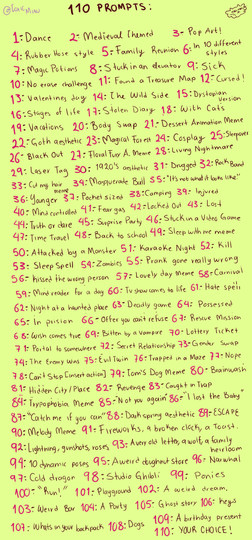 110 PROMPTS:
1: Dance 2: Medieval Themed 3: Pop Art!
4: Rubber Hose style 5: Family Reunion 6: In 10 different styles
7: Magic Potions 8: Stuck in an elevator 9: Sick
10: No erase challenge 11: Found a Treasure Map 12: Cursed!
13: Valentines day 14: The Wild Side 15: Dystopian Version
16: Stages of life 17: Stolen Diary 18: With Cats
19: Vacations 20: Body Swap 21: Dessert Animation Meme
22: Goth aesthetic 23: Magical Forest 24: Cosplay 25: Sleepover
26: Black Out 27: Floral Fury A. Meme 28: Living Nightmare
29: Laser Tag 30: 1920's aesthetic 31: Drugged 32: Rock Band
33: Cut my hair meme 34: Masquerade Ball 35: "Its not what it looks like"
36: Younger 37: Pocket sized 38: Camping 39: Injured
40: Mind controlled 41: Fear gas 42: Locked Out 43: Lost
44: Truth or dare 45: Surprise Party 46: Stuck in a Video Game
47: Time Travel 48: Back to school 49: Sleep with me meme
50: Attacked by a Monster 51: Karaoke Night 52: Kill
53: Sleep Spell 54: Zombies 55: Prank gone really wrong
56: Kissed the wrong person 57: Lovely day Meme 58: Carnival
59: Mind reader for a day 60: Tv show comes to life 61: Hate spell
62: Night at a haunted place 63: Deadly game 64: Possesed
65: In prision 66: Offer you can't refuse 67: Rescue Mission
68: Wish comes true 69: Bitten by a Vampire 70: Lottery Ticket
71: Portal to somewhere 72: Secret Relationship 73: Gender Swap
74: The Enemy Wins 75: Evil Twin 76: Trapped in a Maze 77: Nope
78: Can't Stop [insert action] 79: Tom's Dog Meme 80: Brainwash
81: Hidden City/Place 82: Revenge 83: Caught in Trap
84: Trypophobia Meme 85: "Not you again" 86: "I lost the Baby"
87: "Catch me if you can" 88: Dark spring aesthetic 89: ESCAPE
90: Melody Meme 91: Fireworks, a broken clock, a Toast.
92: Lightning, gunshots, roses 93: A very old letter, a wolf, a family heirloom
94: 10 dynamic poses 95: A weird doughnut store 96: Narwhal
97: Cold dragon 98: Studio Ghibli 99: Ponies
100: "Run!" 101: Playground 102: A weird dream,
103: Weird Bar 104: A Party 105: Ghost story 106: Keys
107: Whats in your backpack 108: Dogs 109: A birthday present
110: YOUR CHOICE!